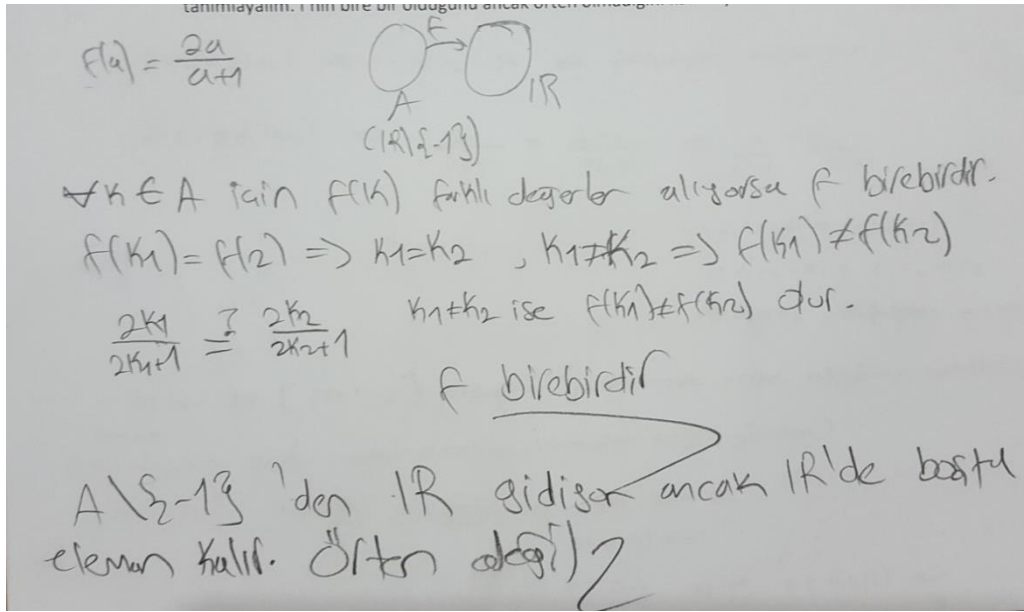 tanımlayalım. f'nin bire bir olduğunu ancak örten olmadığını
f(a) = 2a/a+1
f
A
IR
(IR\{-1})
∀K ∈ A için f(K) farklı değerler alıyorsa f birebirdir.
f(K1) = f(2) => K1=K2 , K1≠K2 => f(K1) ≠ f(K2)
2K1/2K1+1 ?= 2K2/2K2+1
K1≠K2 ise f(K1)≠f(K2) dur.
f birebirdir
A\{-1} 'den IR gidiyor ancak IR'de boşta
eleman kalır. Örten değil